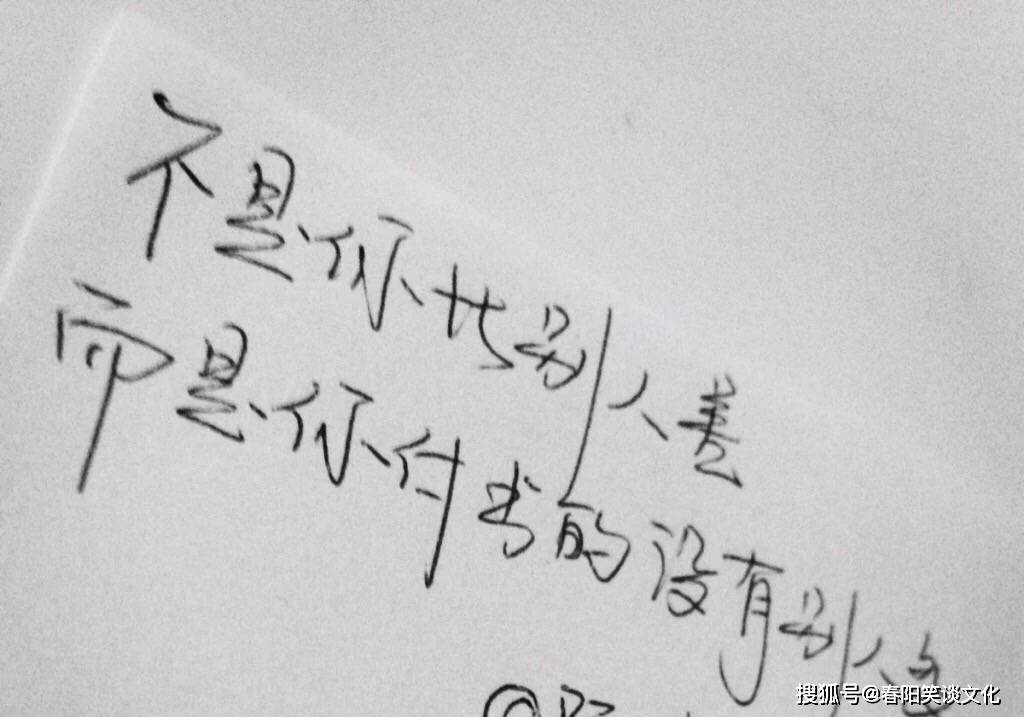 不是你比别人差
而是你付出的没有别人多
搜狐号@春阳笑谈文化